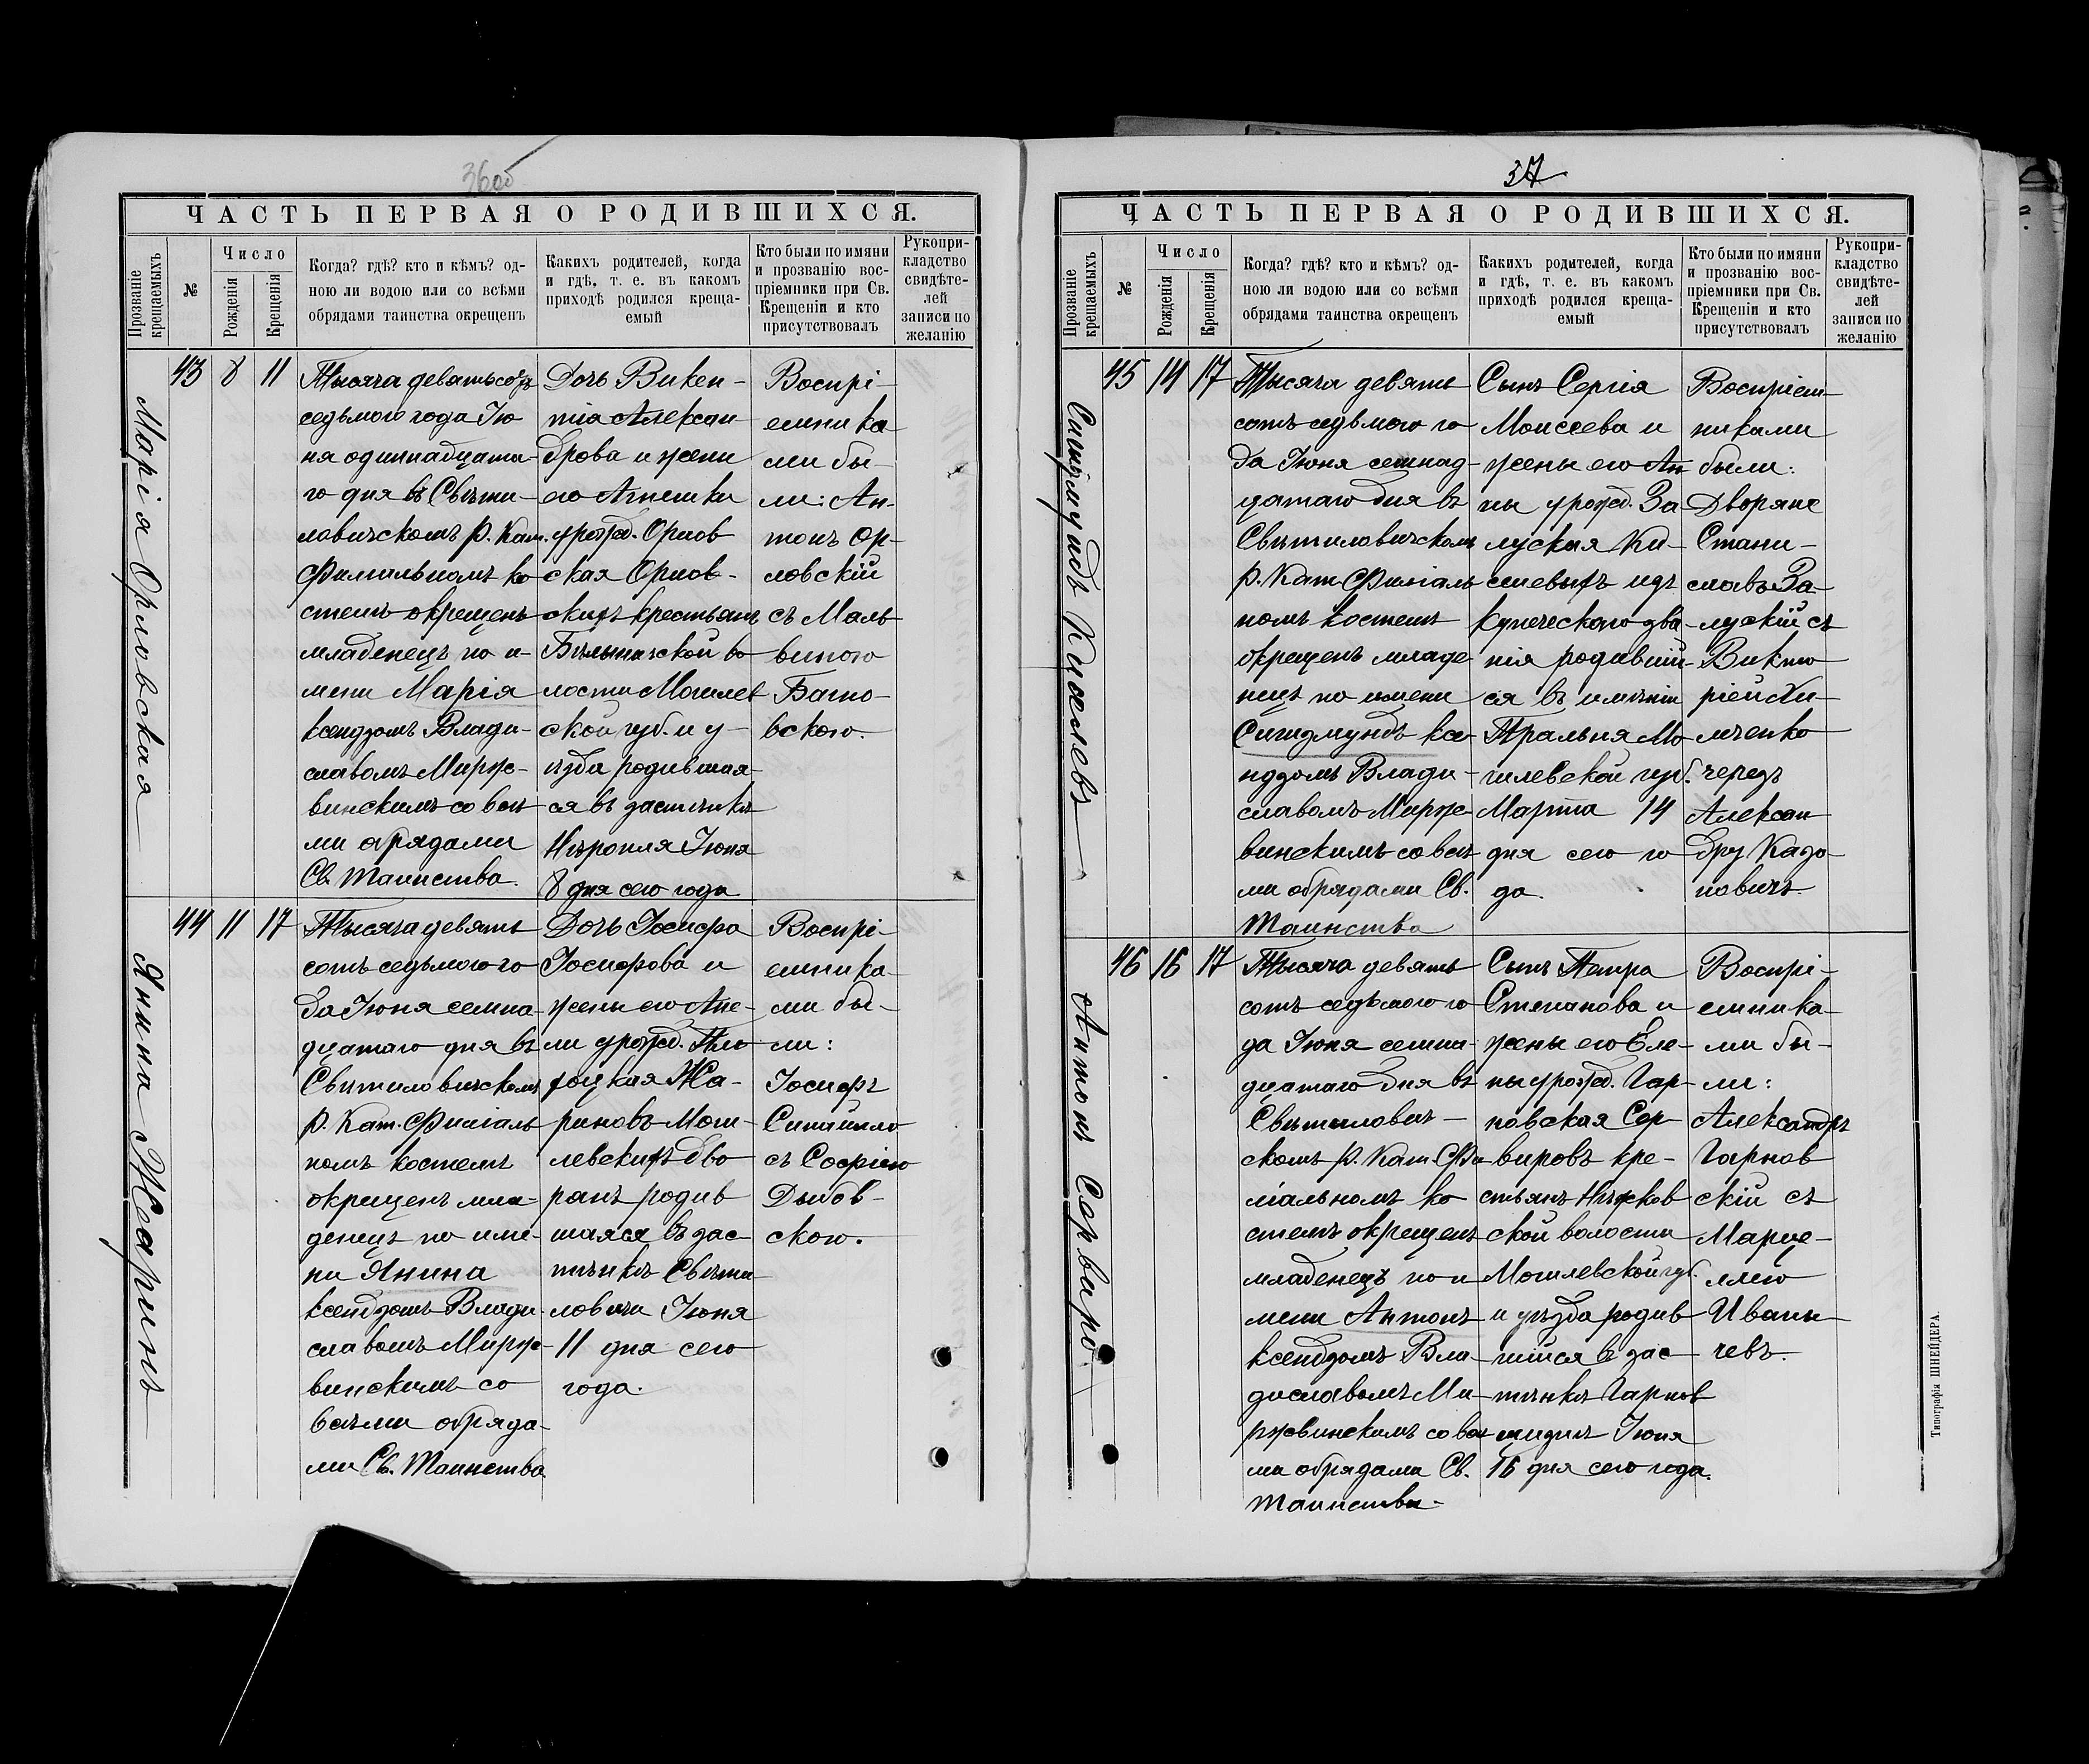 36об
ЧАСТЬ ПЕРВАЯ О РОДИВШИХСЯ.
Прозваніе крещаемыхъ
№
Число
Рожденія
Крещенія
Когда? гдѣ? кто и кѣмъ? од-
ною ли водою или со всѣми
обрядами таинства окрещенъ
Какихъ родителей, когда
и гдѣ, т. е. въ какомъ
приходѣ родился креща-
емый
Кто были по имяни
и прозванію вос-
пріемники при Св.
Крещеніи и кто
присутствовалъ
Рукопри-
кладство
свидѣте-
лей
записи по
желанію
Марія Орловская
43 8 11
Тысяча девятьсотъ
седьмого года Ію
ня одиннадцата-
го дня въ Свѣти-
ловичскомъ Р. Кат.
Филіальномъ ко
стелѣ окрещенъ
младенецъ по и-
мени Марія
ксендзомъ Влади-
славомъ Мирж-
винскимъ со всѣ
ми обрядами
Св. Таинства.
Дочь Викен-
тія Алексан-
дрова и жены
его Агнешки
урожд. Орлов
ская Орлов-
скихъ крестьянъ
Бѣлыничской во
лости Могилев
ской губ. и у-
ѣзда родившая-
ся въ застѣнкѣ
Нѣропля Іюня
8 дня сего года
Воспрі-
емника
ми бы-
ли: Ан-
тонъ Ор-
ловскій
съ Маль
виною
Багно-
вскою.
Янина Жаринъ
44 11 17
Тысяча девять
сотъ седьмого го
да Іюня семна-
дцатаго дня въ
Свѣтиловичскомъ
Р. Кат. Филіаль
номъ костелѣ
окрещенъ мла-
денецъ по име-
ни Янина
ксендзомъ Влади-
славомъ Мирж-
винскимъ со
всѣми обряда-
ми Св. Таинства
Дочь Іосифа
Іосифова и
жены его Ане-
ли урожд.
Жа-
риновъ Моги-
левскихъ дво
рянъ родив
шаяся въ зас
тѣнкѣ Свѣти
ловичи Іюня
11 дня сего
года.
Воспрі-
емника-
ми бы-
ли:
Іосифъ
съ Софіею
Дыбов-
скою.
37
ЧАСТЬ ПЕРВАЯ О РОДИВШИХСЯ.
Прозваніе крещаемыхъ
№
Число
Рожденія
Крещенія
Когда? гдѣ? кто и кѣмъ? од-
ною ли водою или со всѣми
обрядами таинства окрещенъ
Какихъ родителей, когда
и гдѣ, т. е. въ какомъ
приходѣ родился креща-
емый
Кто были по имяни
и прозванію вос-
пріемники при Св.
Крещеніи и кто
присутствовалъ
Рукопри-
кладство
свидѣте-
лей
записи по
желанію
Сигизмундъ Киселевъ
45 14 17
Тысяча девять
сотъ седьмого го
да Іюня семнад-
цатаго дня въ
Свѣтиловичскомъ
Р. Кат. Филіаль
номъ костелѣ
окрещенъ младе
нецъ по имени
Сигизмундъ ксе
ндзомъ Влади-
славомъ Мирж-
винскимъ со всѣ
ми обрядами Св.
Таинства
Сынъ Сергія
Моисеева и
жены его Ан
ны урожд. За
луская Ки-
селевыхъ изъ
купеческого зва-
нія родивший-
ся въ имѣніи
Пральня Мо
гилевской губ.
Марта 14
дня сего го
да.
Воспріем-
никами
были:
Дворяне
Стани-
славъ За-
лускій съ
Викто
ріей Хи-
мченко
черезъ
Алексан
дру Кадо-
новичъ
Антонъ Сервиро
46 16 17
Тысяча девять
сотъ седьмого го
да Іюня семна-
дцатаго дня въ
Свѣтилович-
скомъ Р. Кат. Фи
ліальномъ ко
стелѣ окрещенъ
младенецъ по и
мени Антонъ
ксендзомъ Вла-
диславомъ Ми-
ржвинскимъ со всѣ
ми обрядами Св.
Таинства.
Сынъ Петра
Степанова и
жены его Еле-
ны урожд. Гар-
новская Сер-
вировъ кре-
стьянъ Нѣжков
ской волости
Могилевской губ.
и уѣзда родив
шійся въ зас-
тѣнкѣ Гарнов
Іюня
16 дня сего года.
Воспрі-
емника-
ми бы-
ли:
Александръ
Гарнов
скій съ
Марце-
лею
Иваны-
чевъ.
Типографія ШНЕЙДЕРА.